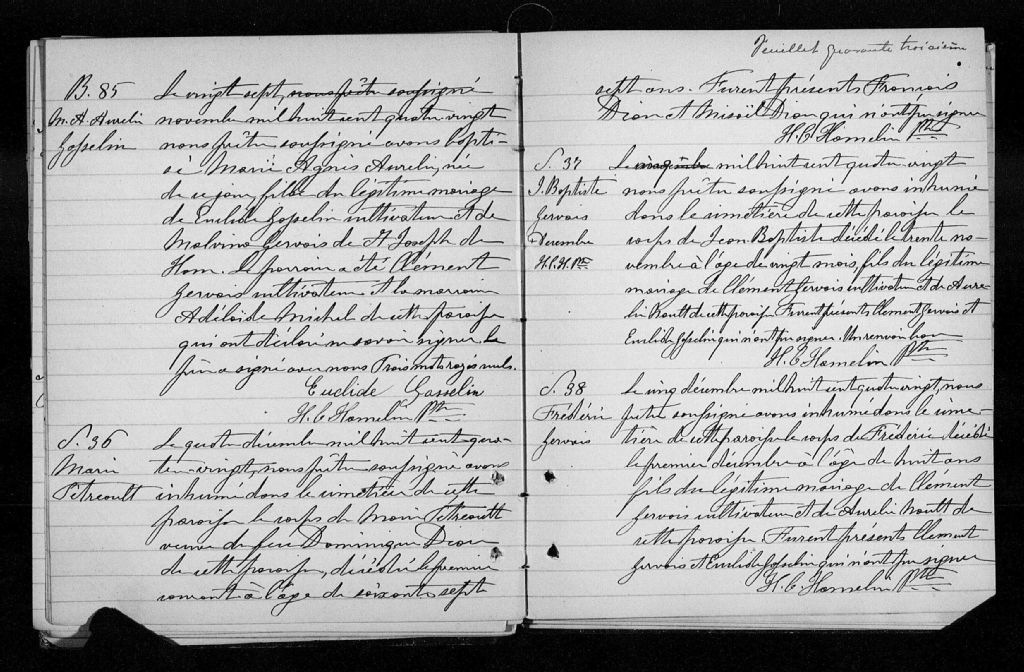 B. 85
M. A. Aurelie
Gosselin
Le vingt sept, nous prêtre soussigné
novembre mil huit cent quatre vingt
nous prêtre soussigné avons bapti-
sé Marie Agnès Aurelie, née
de ce jour, fille du légitime mariage
de Euclide Gosselin cultivateur et de
Malvina Gervais de St Joseph de
Ham. Le parrain a été Clément
Gervais cultivateur et la marraine
Adélaïde Michel de cette paroisse
qui ont déclaré ne savoir signer, le
père a signé avec nous Trois mots rayés nuls.
Euclide Gosselin
H. C. Hamelin Ptre
S. 36
Marie
Tetreault
Le quatre décembre mil huit cent qua-
tre-vingt, nous prêtre soussigné avons
inhumé dans le cimetière de cette
paroisse le corps de Marie Tetreault
veuve de feu Dominique Dion
de cette paroisse, décédée le premier
courant à l'âge de soixante sept
Feuillet quarante troisième
sept ans. Furent présents François
Dion et Misaël Dion qui n'ont pu signer
H. C. Hamelin Ptre
S. 37
J. Baptiste
Gervais
Décembre
H.C.H. Ptre
Le cinq mil huit cent quatre vingt
nous prêtre soussigné avons inhumé
dans le cimetière de cette paroisse le
corps de Jean Baptiste décédé le trente no-
vembre à l'âge de vingt mois, fils du légitime
mariage de Clément Gervais, cultivateur et de Aure-
lie Nault de cette paroisse Furent présents Clément Gervais et
Euclide Gosselin qui n'ont pu signer. Un renvoi bon
H. C. Hamelin Ptre
S. 38
Frédéric
Gervais
Le cinq décembre mil huit cent quatre vingt, nous
prêtre soussigné avons inhumé dans le cime-
tière de cette paroisse le corps de Frédéric décédé
le premier décembre à l'âge de huit ans
fils du légitime mariage de Clément
Gervais cultivateur et de Aurelie Nault de
cette paroisse Furent présents Clément
Gervais et Euclide Gosselin qui n'ont pu signer
H. C. Hamelin Ptre